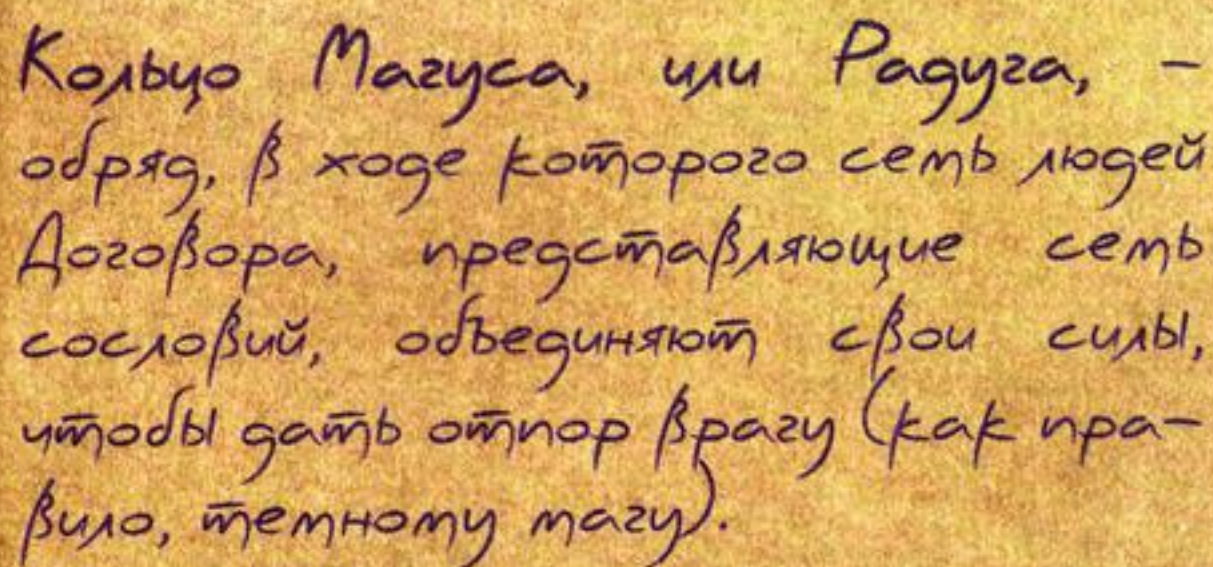 Кольцо Магуса, или Радуга, –
обряд, в ходе которого семь людей
Договора, представляющие семь
сословий, объединяют свои силы,
чтобы дать отпор врагу (как пра-
вило, темному магу).